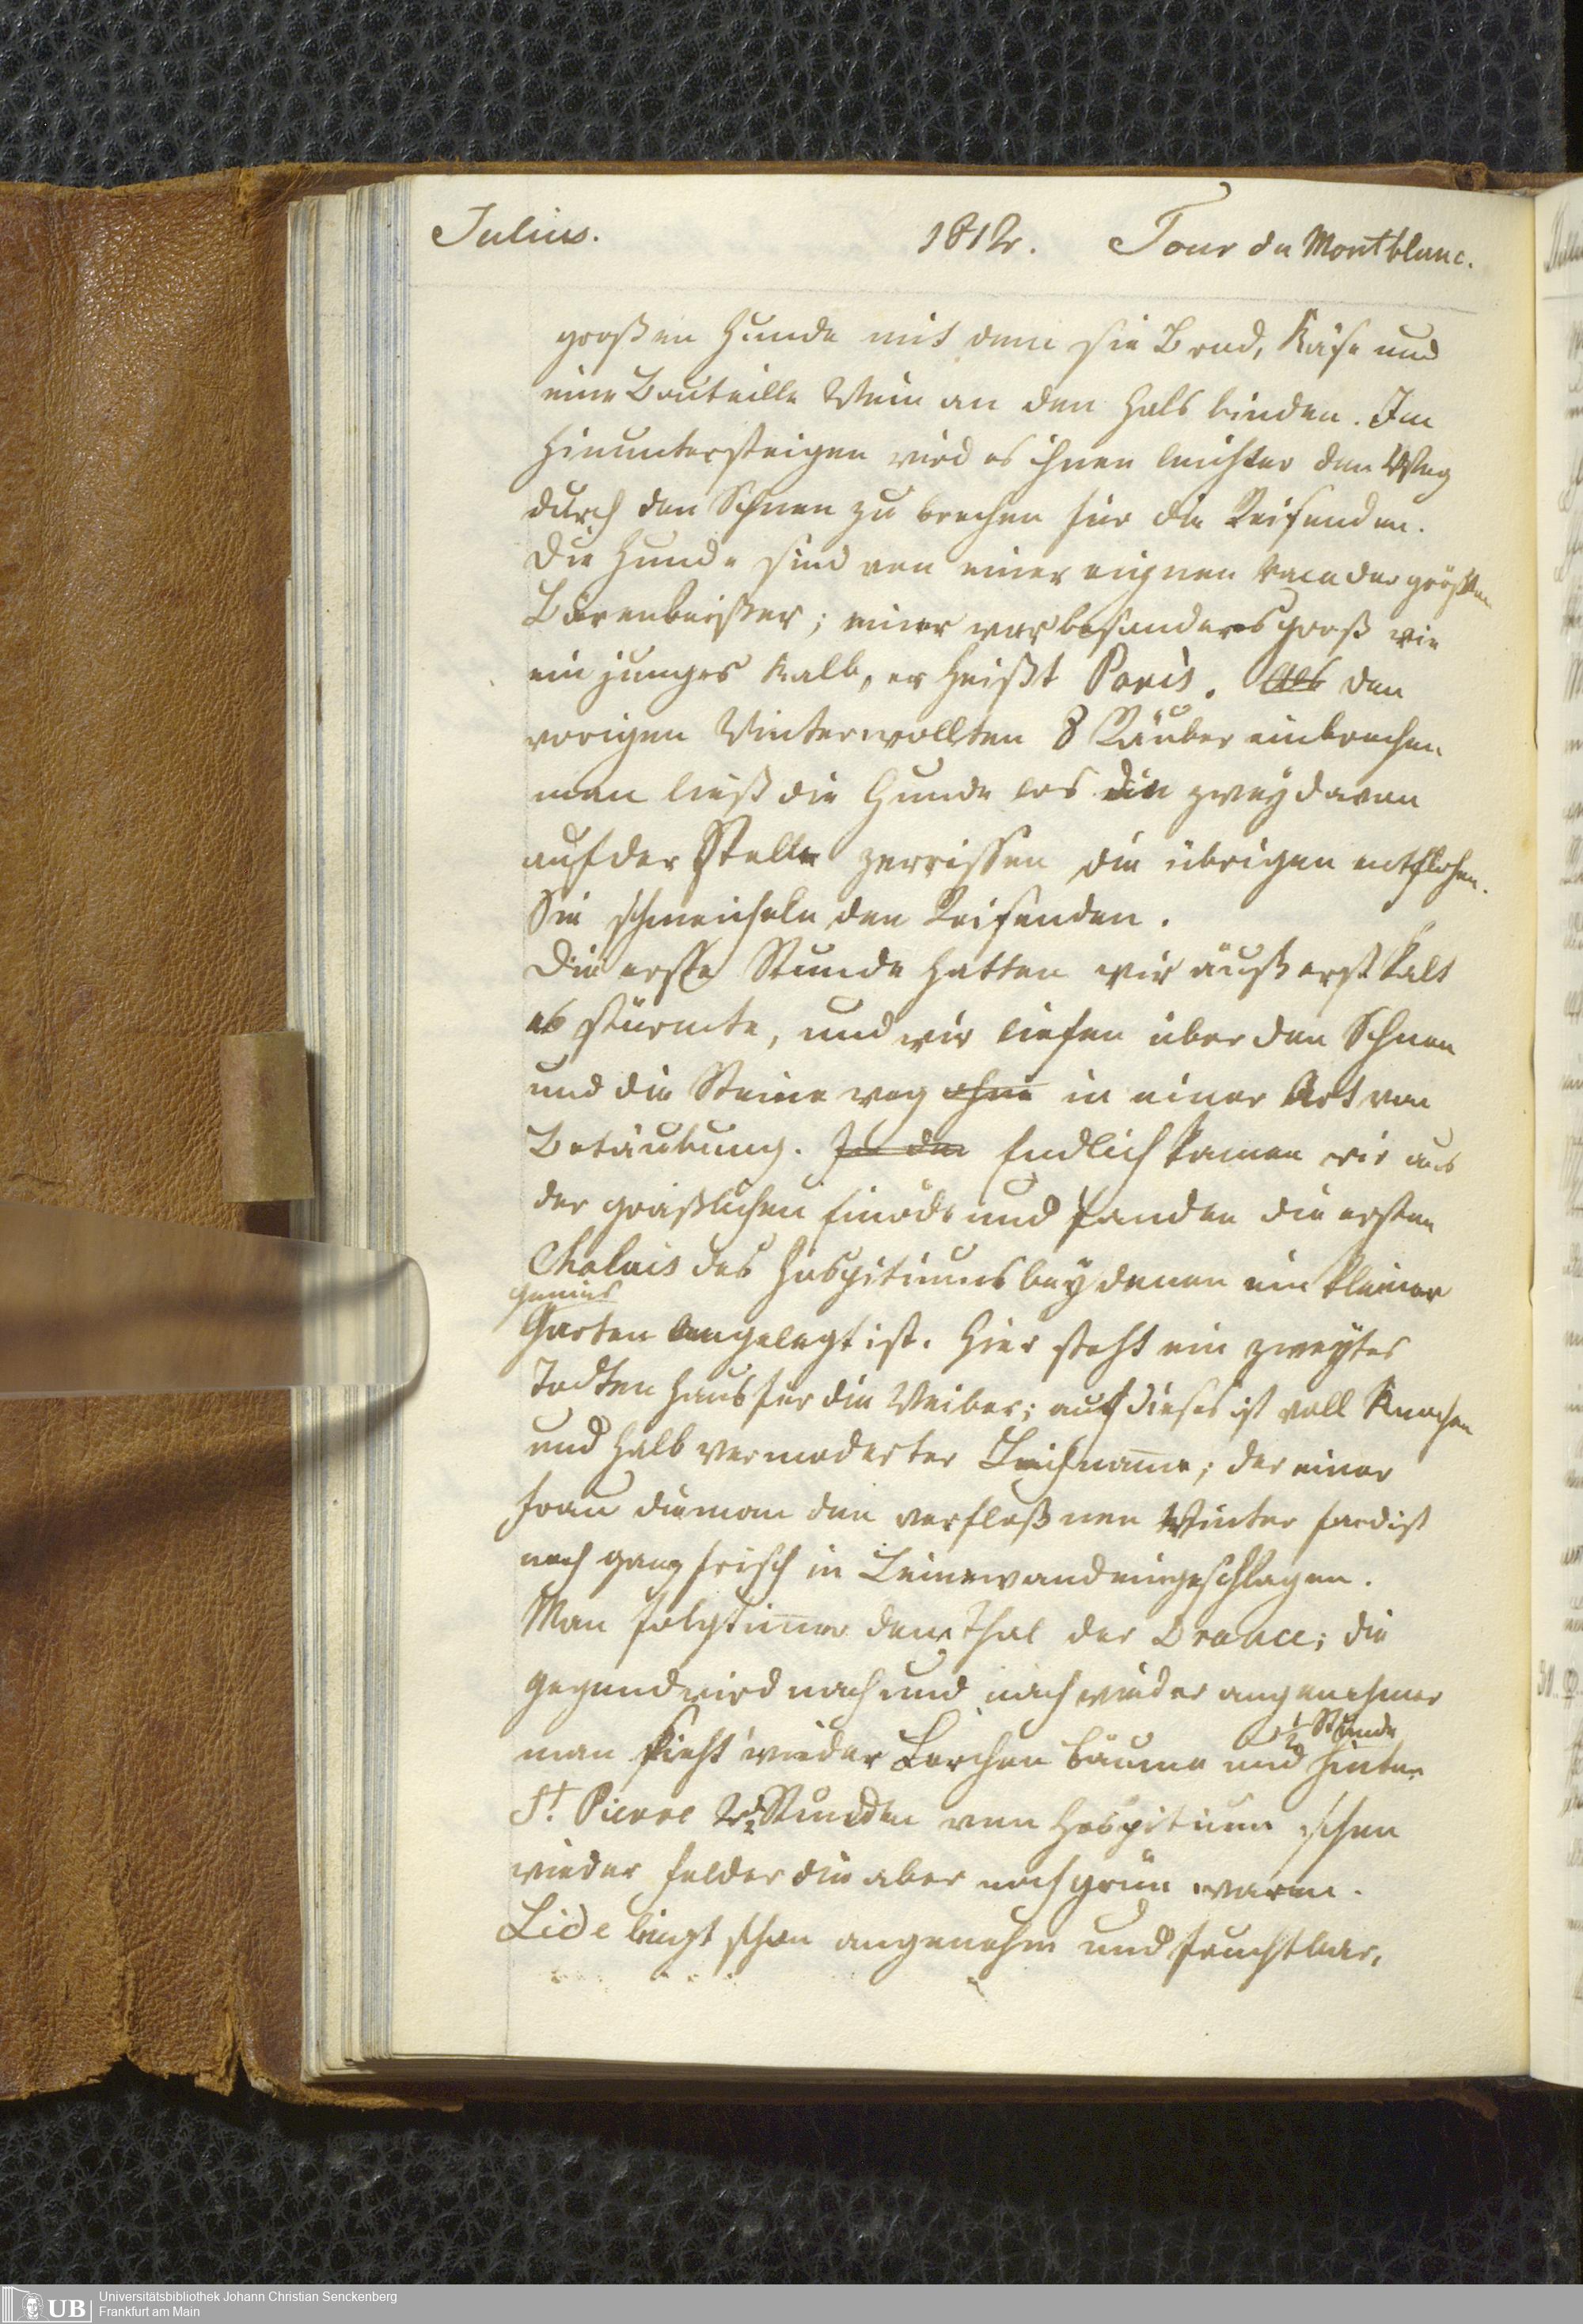 Julius. 1812. Tour du Montblanc.
großen Hunde mit dem sie Brod, Käse und
eine Bouteille Wein an den Hals binden. Im
Hinuntersteigen wird es ihnen leichter den Weg
durch den Schnee zu brechen für die Reisenden.
Die Hunde sind von einer eignen Race der größten
Bärenbeißer; einer war besonders groß wie
ein junges Kalb, er heißt Paris. Als den
vorigen Winter wollten 8 Räuber einbrechen
man ließ die Hunde los die zwey davon
auf der Stelle zerrissen die übrigen entflohen.
Sie schmeicheln den Reisenden.
Die erste Stunde hatten wir äußerst kalt
es stürmte, und wir liefen über den Schnee
und die Steine weg ohne in einer Art von
Betäubung. In der Endlich kamen wir aus
der gräßlichen Einöde und fanden die ersten
Chalais des Hospitiums bey denen ein kleiner
Gemüs
Garten angelegt ist. Hier steht ein zweytes
Todten Haus für die Weiber; auch dieses ist voll Knochen
und halb vermoderter Leichname; der einer
Frau die man den verfloßnen Winter fand ist
noch ganz frisch in Leinewand eingeschlagen.
Man folgt immer dem Thal der Drance; die
Gegend wird nach und nach wieder angenehmer
man sieht wieder Lerchen bäume und hinter
½ Stunde
St. Pierre Stunden vom Hospitium schon
wieder Felder die aber noch grün waren.
Lide liegt schon angenehm und fruchtbar,
UB Universitätsbibliothek Johann Christian Senckenberg
Frankfurt am Main